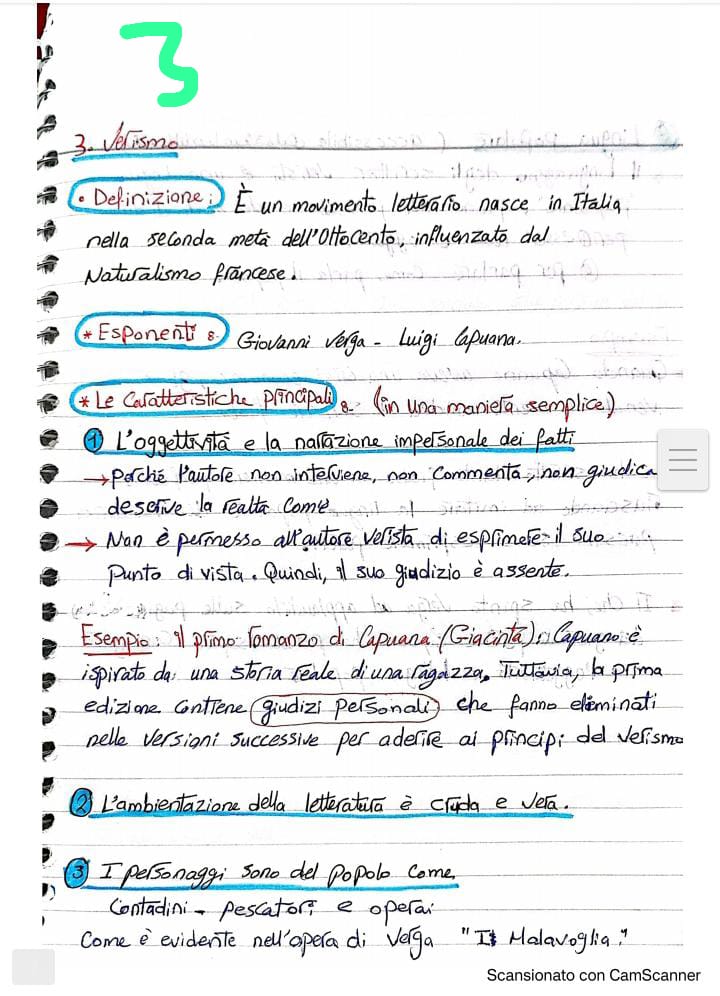 3
3. Verismo
• Definizione: È un movimento letterario nasce in Italia
nella seconda metà dell'Ottocento, influenzato dal
Naturalismo francese.
* Esponenti : Giovanni Verga - Luigi Capuana.
* Le Caratteristiche principali :- (in una maniera semplice)
1 L'oggettività e la narrazione impersonale dei fatti
→ Perché l'autore non interviene, non commenta, non giudica
descrive la realtà come
→ Non è permesso all'autore verista di esprimere il suo
punto di vista. Quindi, il suo giudizio è assente.
Esempio: il primo romanzo di Capuana (Giacinta), Capuano è
ispirato da una storia reale di una ragazza. Tuttavia, la prima
edizione contiene giudizi personali che fanno eliminati
nelle versioni successive per aderire ai principi del verismo
2 L'ambientazione della letteratura è cruda e vera.
3 I personaggi sono del popolo come
Contadini - pescatori e operai
Come è evidente nell'opera di Verga "I Malavoglia"
Scansionato con CamScanner